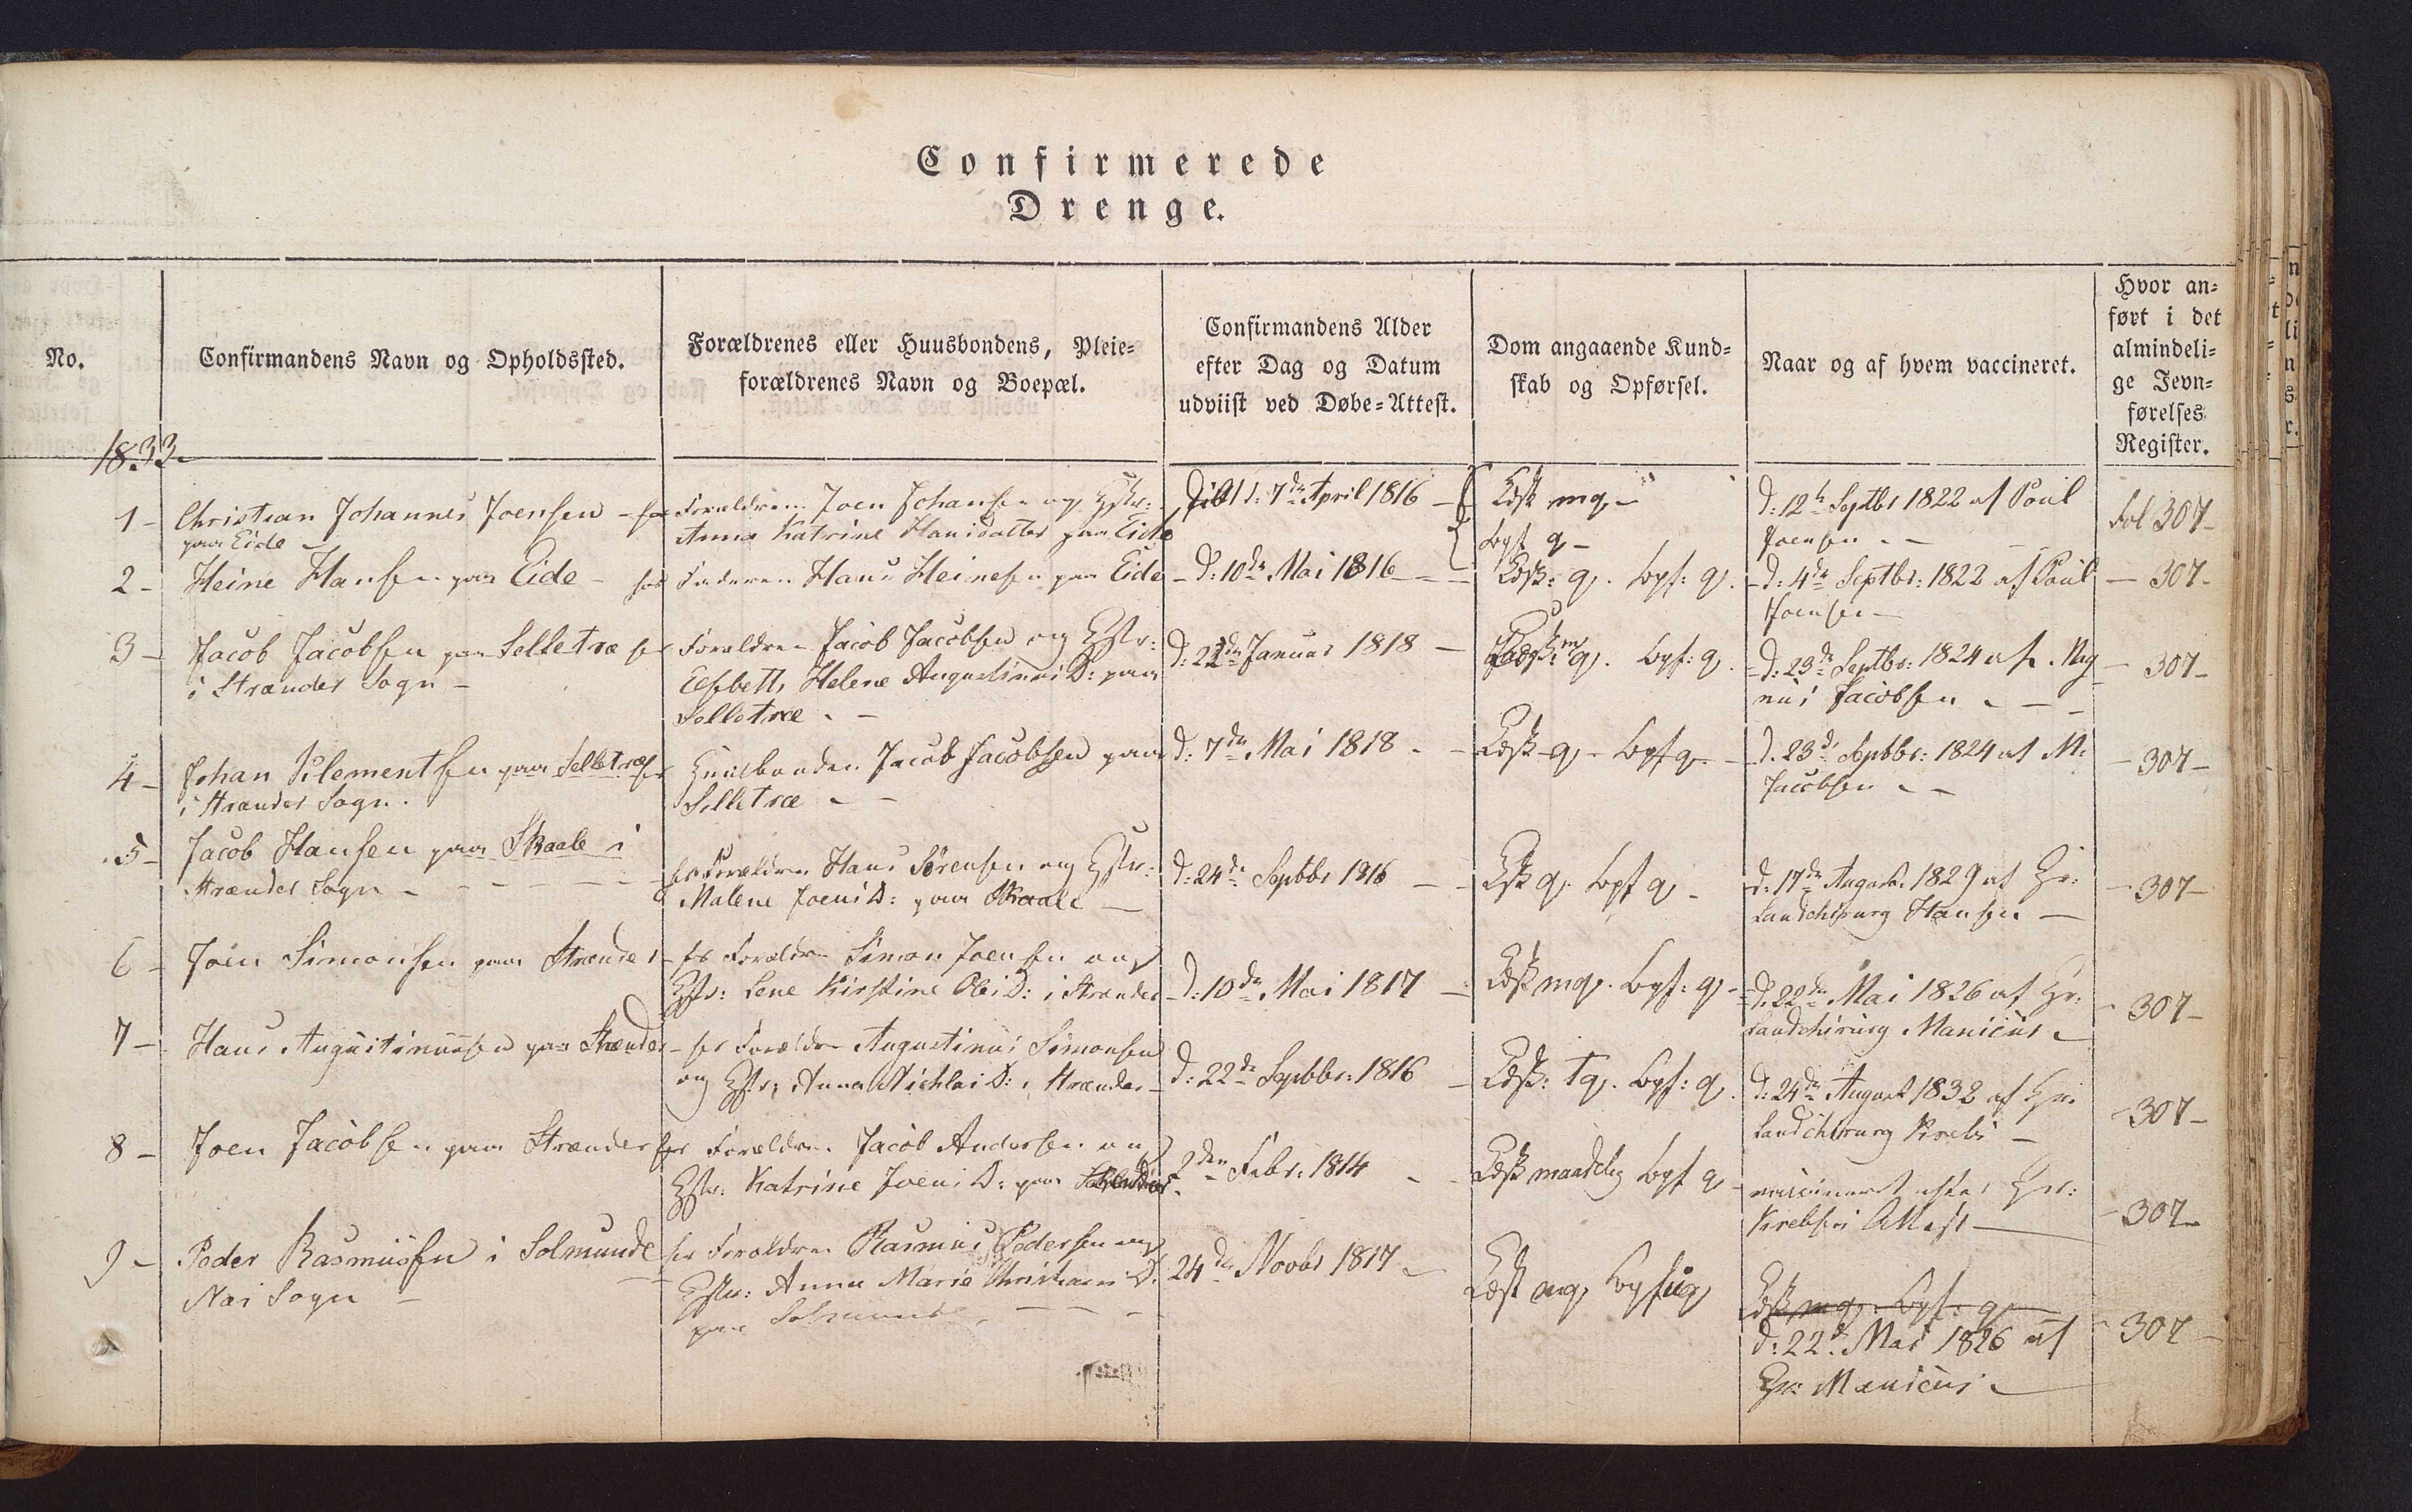 Confirmerede
Drenge.
No.
Confirmandens Navn og Opholdssted.
Forældrenes eller Huusbondens, Pleie-
forældrenes Navn og Boepæl.
Confirmandens Alder
efter Dag og Datum
udviist ved Døbe-Attest.
Dom angaaende Kund-
skab og Opførsel.
Naar og af hvem vaccineret.
Hvor an-
ført i det
almindeli-
ge Jevn-
førelses
Register.
1833
1 - Christian Johannes Joensen - for
paa Eide -
Forældrene Joen Johansen og Hstr:
Anna Katrine Hansdatter paa Eide
d: 7de April 1816 -
Kdsk mg -
Opf g -
d: 12te Septbr 1822 af Poul
Joensen - -
Fol 307 -
2 - Heine Hansen paa Eide - hos
Faderen Hans Heinesen paa Eide
- d: 10de Mai 1816 -
Kdsk: g. Opf: g.
- d: 4de Septbr: 1822 af Poul
Joensen -
- 307 -
3 - Jacob Jacobsen paa Selletræ for
i Strænder Sogn -
Forældre Jacob Jacobsen og Hstr:
Elsbeth Helene Augustinus D: paa
Selletræ . -
d: 22de Januar 1818 -
Kdsk: mg. Opf: g.
- d: 23de Septbr: 1824 af Mag
nus Jacobsen - -
- 307 -
4 - Johan Klementsen paa Selletræ for
i Strænder Sogn.
Huusbonden Jacob Jacobsen paa
Selletræ - -
d: 7de Mai 1818 -
- Kdsk g - Opf g -
d. 23d Septbr: 1824 af M:
Jacobsen - -
- 307 -
5 - Jacob Hansen paa Skaale i
Strænder Sogn -
for Forældre Hans Sørensen og Hstr:
Malene Joens D: paa Skaale -
d: 24de Septbr 1816 -
Kdsk g. Opf g -
d: 17de August 1829 af Hr:
Landchirurg Hansen -
- 307 -
6 - Joen Simonsen paa Strænder
- for Forældre Simon Joensen og
Hstr: Lene Kirstine Ole D: i Strænder
- d: 10de Mai 1817 -
Kdsk mg. Opf: g -
d. 22de Mai 1826 af Hr:
Landchirurg Manicus -
- 307 -
7 - Hans Augustinussen paa Strænder
- for Forældre Augustinus Simonsen
og Hstr: Anna Nichlas D: i Strænder -
d: 22de Septbr: 1816 -
Kdsk: tg. Opf: g.
d: 24de August 1832 af Hr:
Landchirurg Krebs -
- 307 -
8 - Joen Jacobsen paa Strænder for
Forældre Jacob Andersen og
Hstr: Katrine Joens D: paa
2den Febr: 1814 -
Kdsk maadelig Opf g -
vaccineret efter Hr:
Krebses Attest -
- 307 -
9 - Peder Rasmussen i Solmunde
Næs Sogn -
for Forældre Rasmus Pedersen og
Hstr: Anna Marie Christians D:
paa Solmunde -
24de Novbr 1817 -
Kdsk mg, Opf ug
Kdsk mg. Opf: g
d: 22d Mai 1826 af
Hr: Manicus -
- 307 -